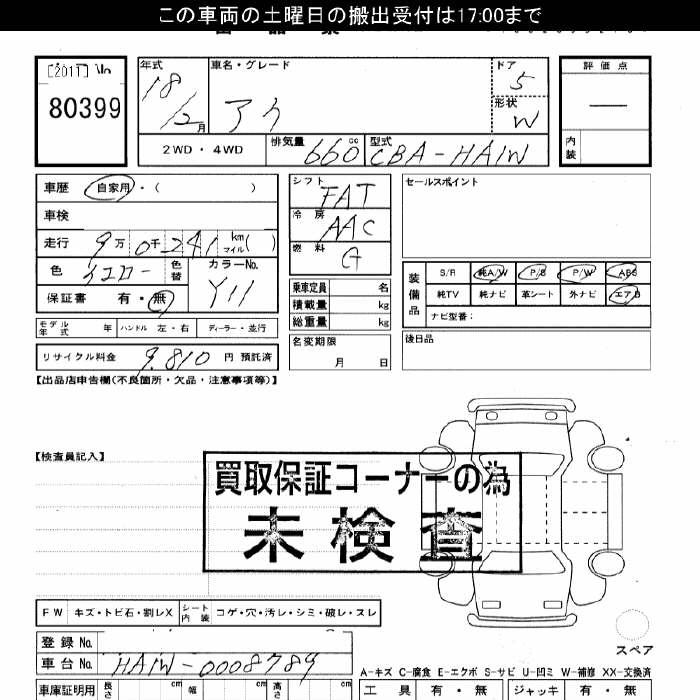 この車両の土曜日の搬出受付は17:00まで
[2011] No 年式 車名・グレード ドア 評価点
80399 18/12月 アイ 5
形状 W
2WD・4WD 排気量 660cc 型式 CBA-HA1W 内装
車歴 自家用・( )
車検
走行 9万0千241 km マイル( )
色 イエロー 色替 カラーNo. Y11
保証書 有・無
モデル年式 年 ハンドル 左・右 ディーラー・並行
リサイクル料金 9,810 円 預託済
シフト FAT
冷房 AAC
燃料 G
乗車定員 名
積載量 kg
総重量 kg
名変期限
月 日
セールスポイント
装備品 S/R 純A/W P/S P/W ABS
純TV 純ナビ 革シート 外ナビ エアB
ナビ型番:
後日品
【出品店申告欄(不良箇所・欠品・注意事項等)】
【検査員記入】
買取保証コーナーの為
未検査
FW キズ・トビ石・割レX シート内装 コゲ・穴・汚レ・シミ・破レ・スレ
スペア
登録 No.
車台 No. HA1W-0008789
A-キズ C-腐食 E-エクボ S-サビ U-凹ミ W-補修 XX-交換済
車庫証明用 長さ cm 幅 cm 高さ cm 工具 有・無 ジャッキ 有・無